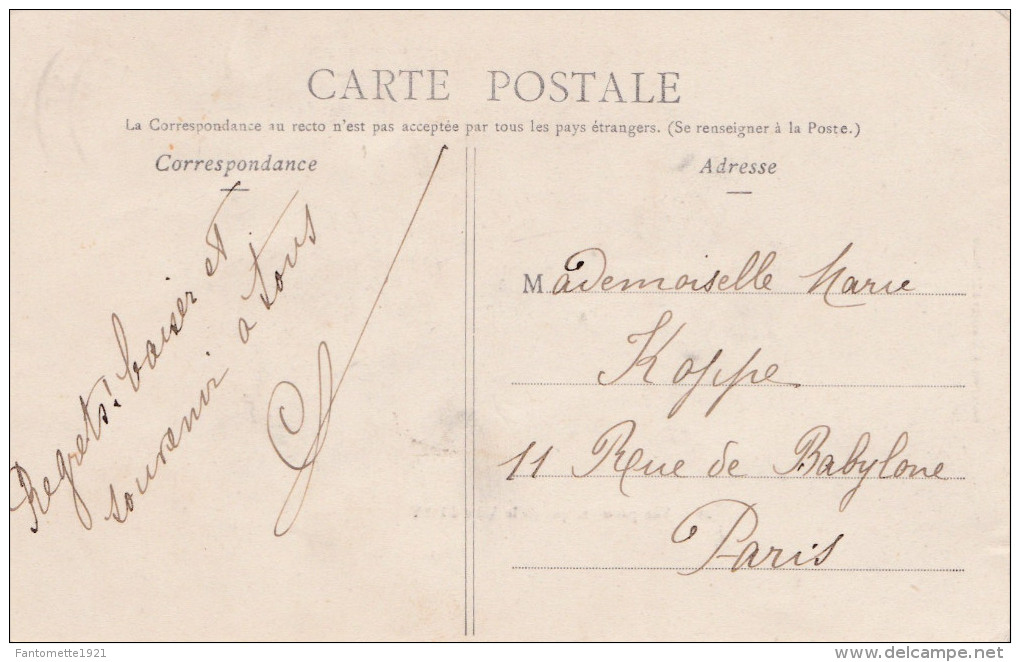 CARTE POSTALE
La Correspondance au recto n'est pas acceptée par tous les pays étrangers. (Se renseigner à la Poste.)
Correspondance
Regrets! baiser et
souvenir à tous
Adresse
Mademoiselle Marie
Koppe
11 Rue de Babylone
Paris
Fantomette1921
www.delcampe.net